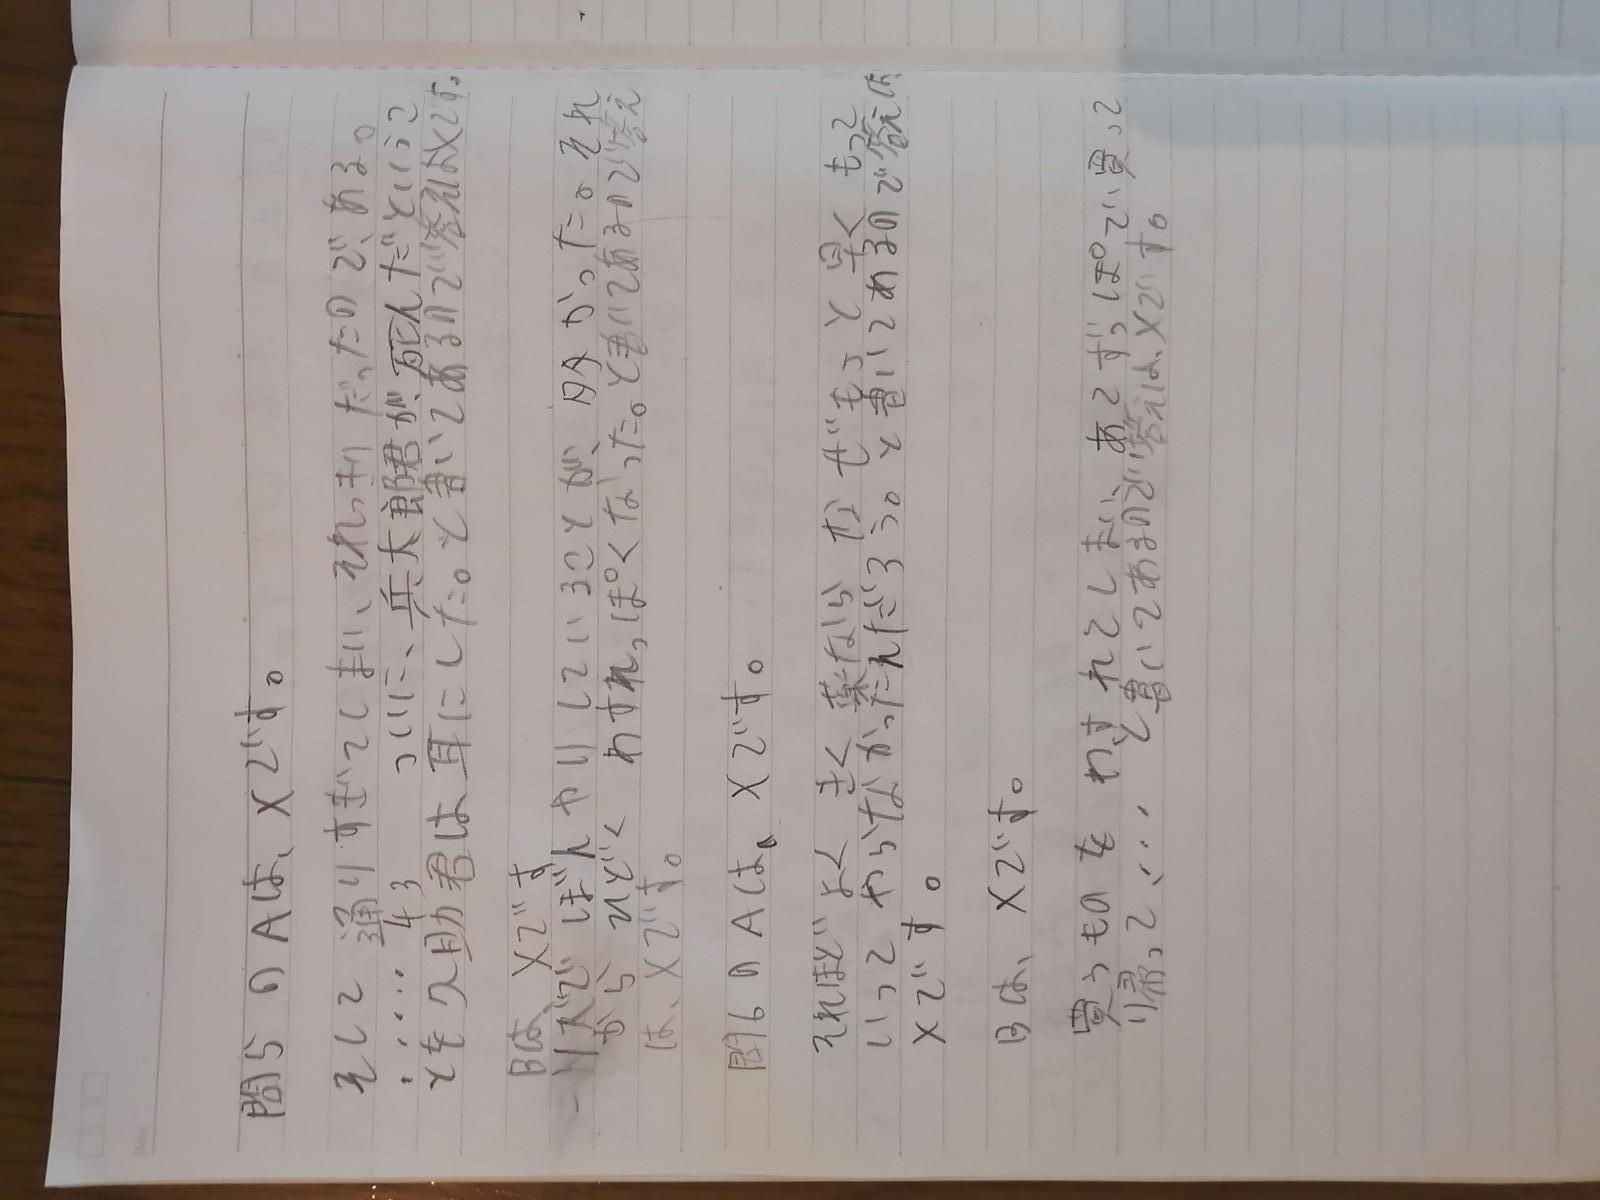 問5のAは、Xです。
そして通りすぎてしまい、それっきりだったのである。
・・・・・43 ついに、兵太郎君が、死んだというこ
とを久助君は耳にした。と書いてあるので答えはXです。
Bは、Xです
一リズでぼんやりしていることが、分かった。それ
から ひどく わすれっぽくなった。と書いてあるので答え
は、Xです。
問6のAは、Xです。
それほどよく きく 薬なら なぜもっと早く もって
いって やらなかったんだろう。と書いてあるので答えは
Xです。
Bは、Xです。
買うものを わすれてしまい、あてずっぽで、買って
り帰ってく・・、と書いてあるので答えは、Xです。